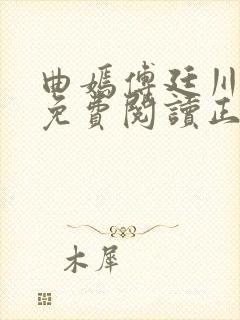 曲嫣傅廷川
免費閱讀正
木犀